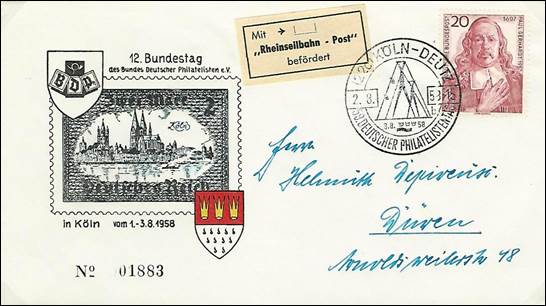 12. Bundestag
des Bundes Deutscher Philatelisten e.V.
BDPh
Zwei Mark 2
Deutsches Reich
in Köln vom 1.-3.8.1958
Nº 01883
Mit →
„Rheinseilbahn - Post"
befördert
KÖLN-DEUTZ
2.8.
3.8. 58
DEUTSCHER PHILATELISTEN
20
1607
DEUTSCHE BUNDESPOST
PAUL GERHARDT
Herrn
Helmuth
Düren
Arnoldsweilerstr 48